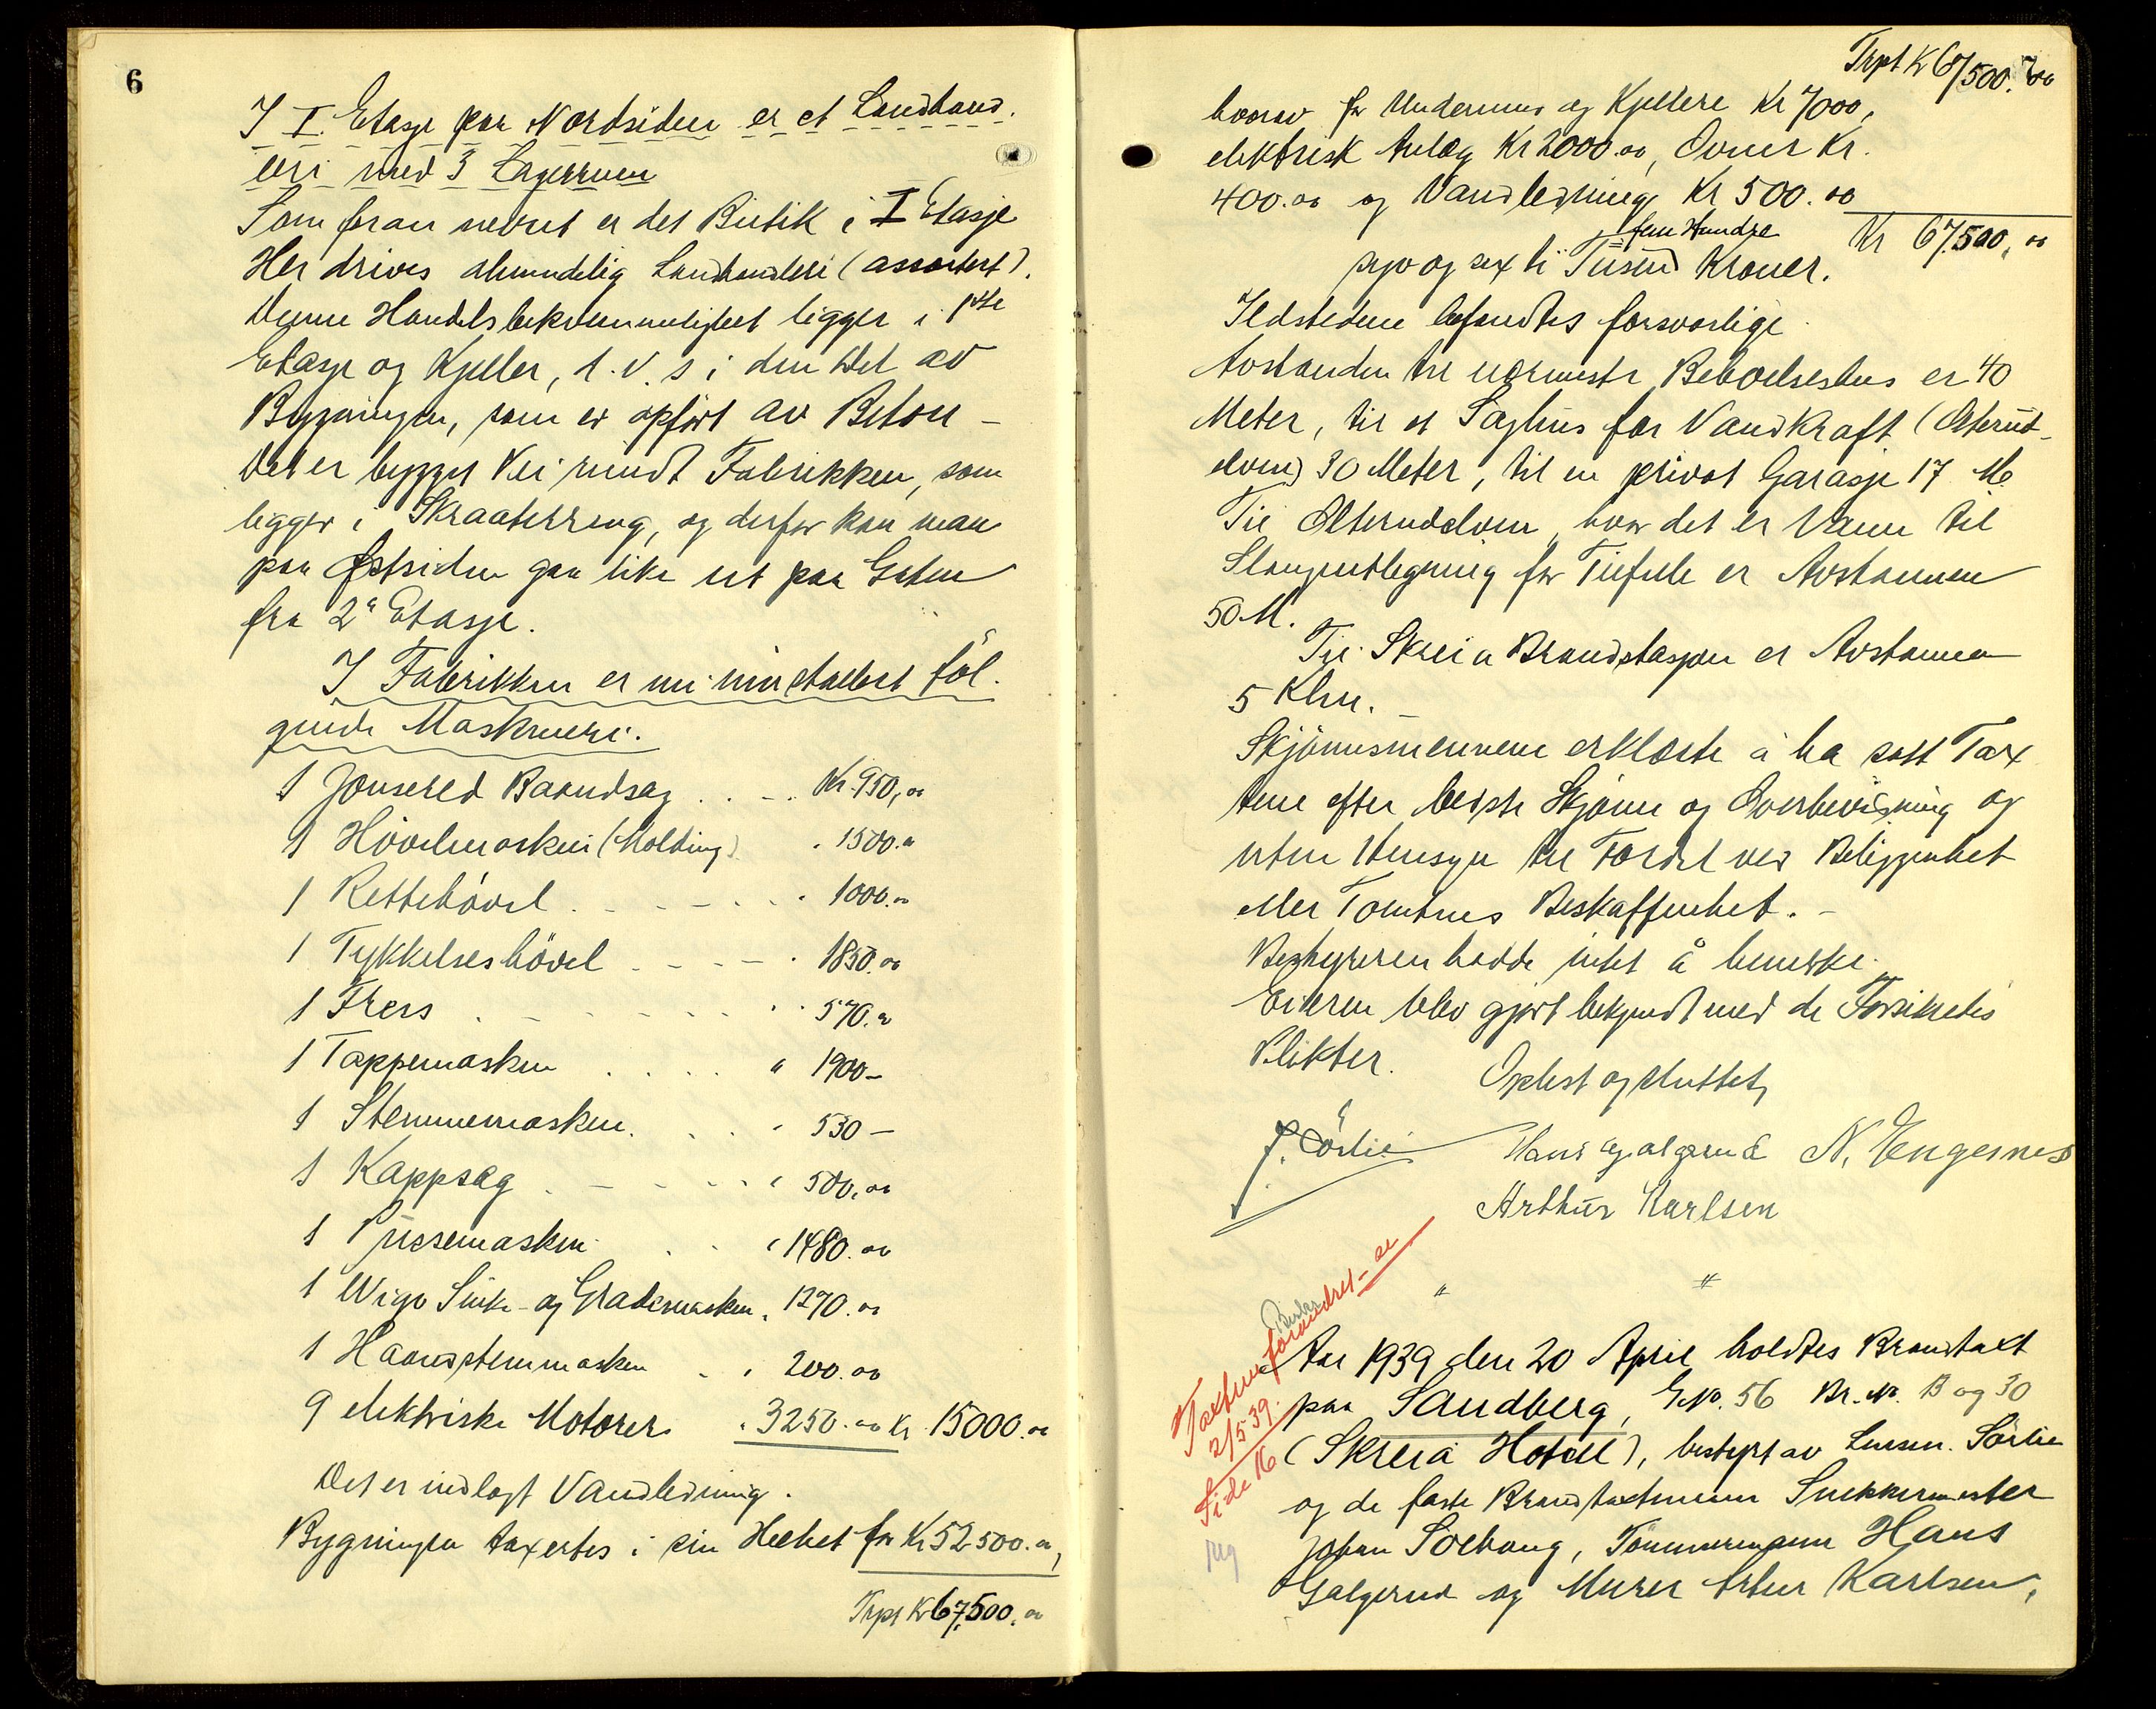 6
I I. Etasje paa Nordsiden er et Landhand.
leri med 3 Lagerrum
Som foran nevnt er det Butik i I Etasje
Her drives almindelig Landhandleri (assortert).
Denne Handelsbekvemmelighet ligger i 1ste
Etasje og Kjeller, d.v.s i den Del av
Bygningen, som er opført av Beton -
Det er bygget Vei rundt Fabrikken, som
ligger i Skraaterreng, og derfor kan man
paa Østsiden gaa like ut paa Gaten
fra 2den Etasje.
I Fabrikken er nu installert føl.
gende Maskineri.
1 Jonsered Baandsag . . - . Kr. 950,00
1 Hövelmaskin (Molding) " 1500.00
1 Rettehövel . - - - . " 1000.00
1 Tykkelseshövel . - - - . " 1850.00
1 Fres . - - - . . " 570.00
1 Tappemaskin . . . . " 1900 -
1 Stemmemaskin. . . . " 530 -
1 Kappsag . - - . . " 500.00
1 Pussemaskin . . " 1480.00
1 Wigo Sinke- og Grademaskin " 1270.00
1 Haandstemmaskin . " 200.00
9 elektriske Motorer " 3250.00 Kr. 15000.00
Det er indlagt Vandledning.
Bygningen taxertes i sin Helhet for Kr 52 500.00,
Trpt Kr 67,500.00
Trpt Kr 67,500.00
hvorav for Undermur og Kjellere Kr 7000,
elektrisk Anlæg Kr 2000.00, Ovner Kr.
400.00 og Vandledning Kr 500.00
fem Hundre
Kr 67,500,00
syv og sexti Tusend Kroner.
Ildstedene befandtes forsvarlige.
Avstanden til nærmeste Beboelseshus er 40
Meter, til et Saghus for Vandkraft (Olterud-
elven) 30 Meter, til en privat Garasje 17 M.
Til Olterudelven, hvor det er Vann til
Slangeutlegning for Tilfelle er Avstannen
50 M.
Til Skreia Brandstasjon er Avstannen
5 Klm. -
Skjönnsmennene erklærte å ha satt Tax
tene efter bedste Skjönn og Overbevisning og
uten Hensyn til Fordel ved Beliggenhet
eller Tomtens Beskaffenhet. -
Bestyreren hadde intet å bemerke.
Eieren blev gjort bekjendt med de Forsikredes
Plikter.
Oplest og sluttet,
J. Sörlie Hans Galgerud N. Engernes
Arthur Karlsen
" "
Taxten forandret - se
2/5 39.
Side 16
Aar 1939 den 20 April holdtes Brandtakt
paa Sandberg, G.No. 56 Br.No. 13 og 30
(Skreia Hotell), bestyrt av Lensm. Sörlie
og de faste Brandtaxtmenn Snekkermester
Johan Soehaug, Tömmermann Hans
Galgerud og Murer Artur Karlsen,